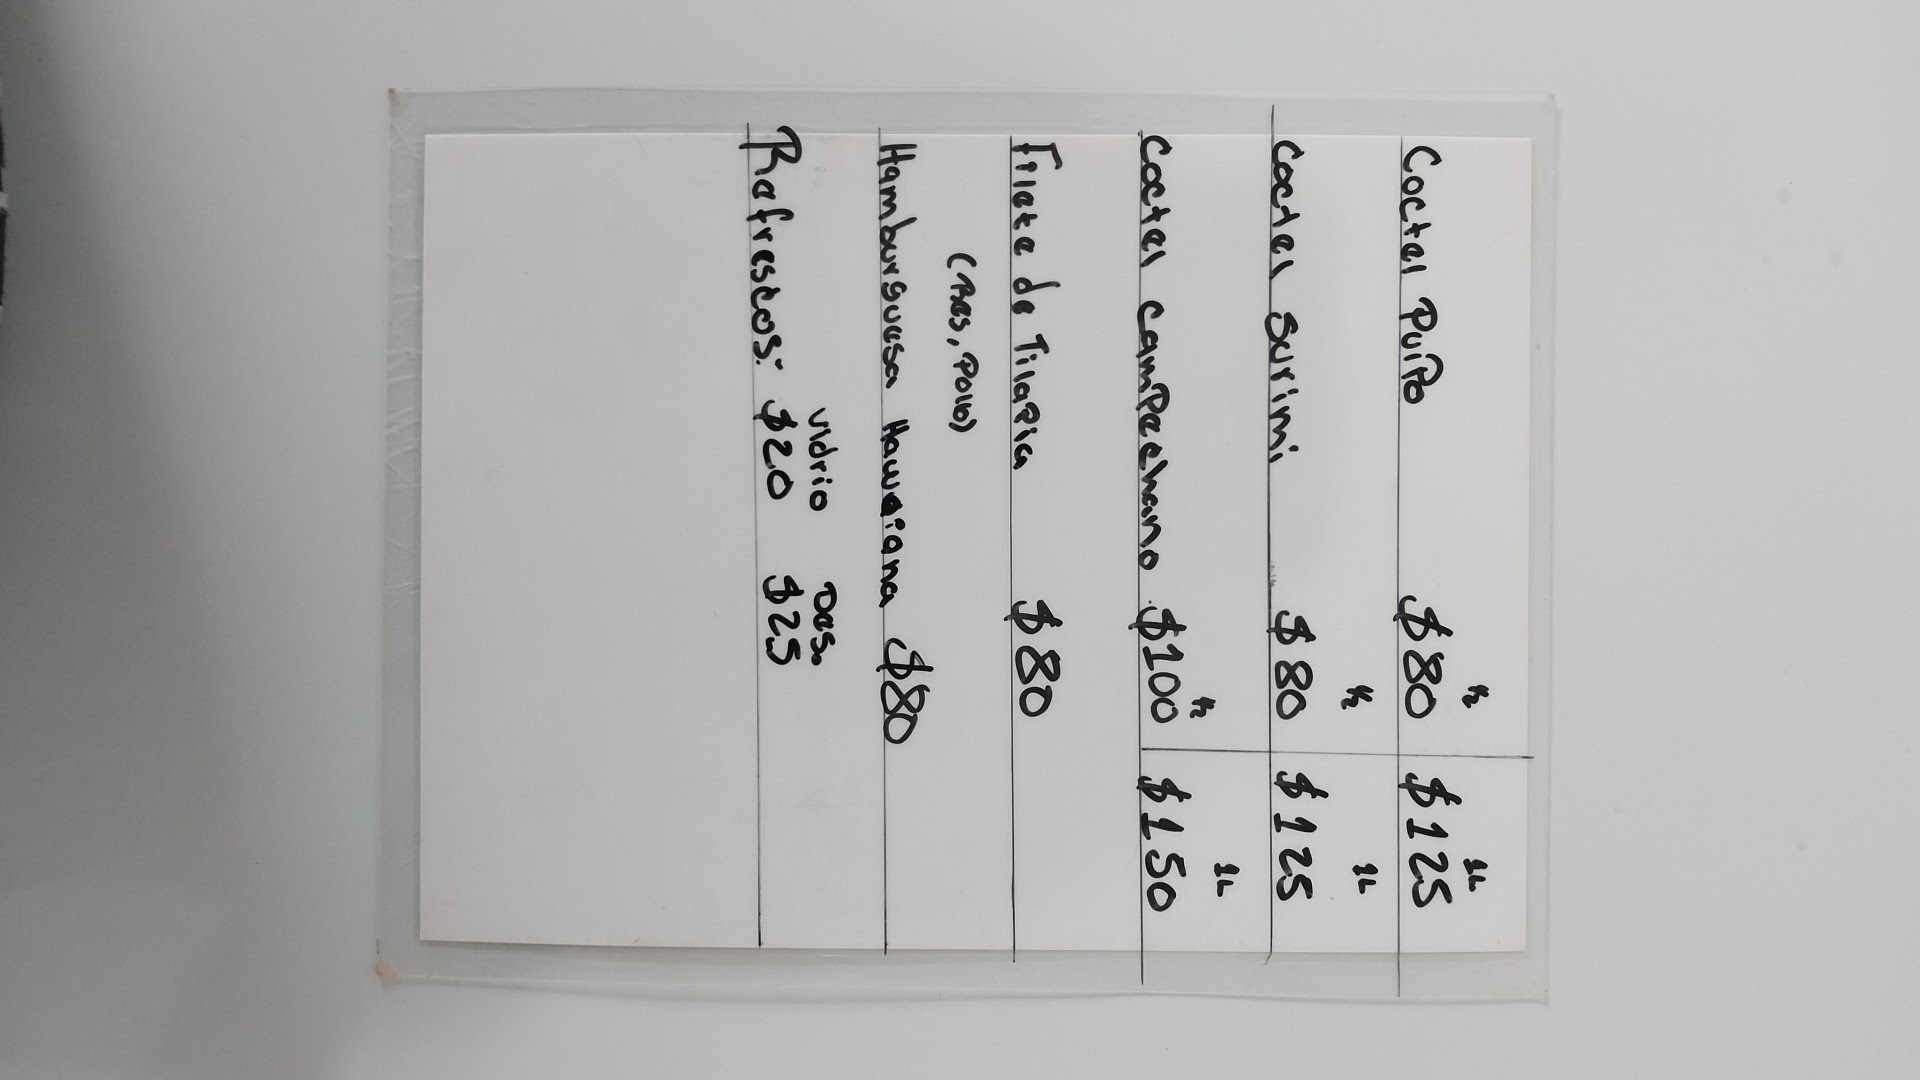 ½ 1L
Coctel Pulpo $80 $125
½ 1L
Coctel Surimi $80 $125
½ 1L
Coctel Campechano $100 $150
Filete de Tilapia $80
(Res, Pollo)
Hamburguesa Hawaiana $80
Vidrio Des.
Refrescos: $20 $25